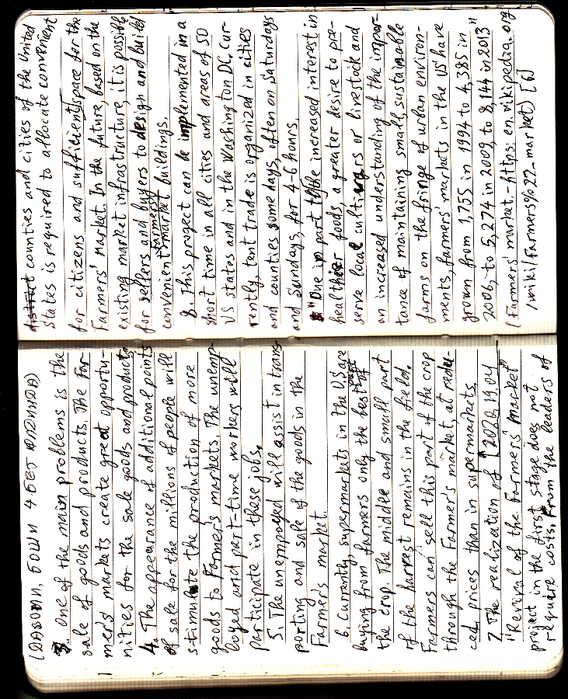 3. One of the main problems is the
sale of goods and products. The Far-
mer's markets create great opportu-
nities for the sale goods and products.
4. The appearance of additional points
of sale for the millions of people will
stimulate the production of more
goods to Farmer's markets. The unemp-
loyed and part-time workers will
participate in these jobs.
5. The unemployed will assist in trans-
porting and sale of the goods in the
Farmer's market.
6. Currently supermarkets in the US are
buying from farmers only the best part of
the crop. The middle and small part
of the harvest remains in the field.
Farmers can sell this part of the crop
through the Farmer's market, at redu-
ced prices than in supermarkets.
7. The realization of [2020,19.04
"Revival of the Farmers' market"
project in the first stage does not
require costs. From the leaders of
district counties and cities of the United
States is required to allocate convenient
for citizens and sufficiently space for the
Farmers' market. In the future, based on the
existing market infrastructure, it is possible
for sellers and buyers to design and build
convenient farmers' market buildings.
8. This project can be implemented in a
short time in all cities and areas of 50
US states and in the Washington DC, cur-
rently, tent trade is organized in cities
and counties some days, often on Saturdays
and Sundays, for 4-6 hours.
"Due in part to the increased interest in
healthier foods, a greater desire to pre-
serve local cultivars or livestock and
an increased understanding of the impor-
tance of maintaining small, sustainable
farms on the fringe of urban environ-
ments, farmers' markets in the US have
grown from 1,755 in 1994 to 4,385 in
2006, to 5,274 in 2009, to 8,144 in 2013"
(Farmers' market.- https: en.wikipedia.org
/wiki/Farmers%22_market) [6]